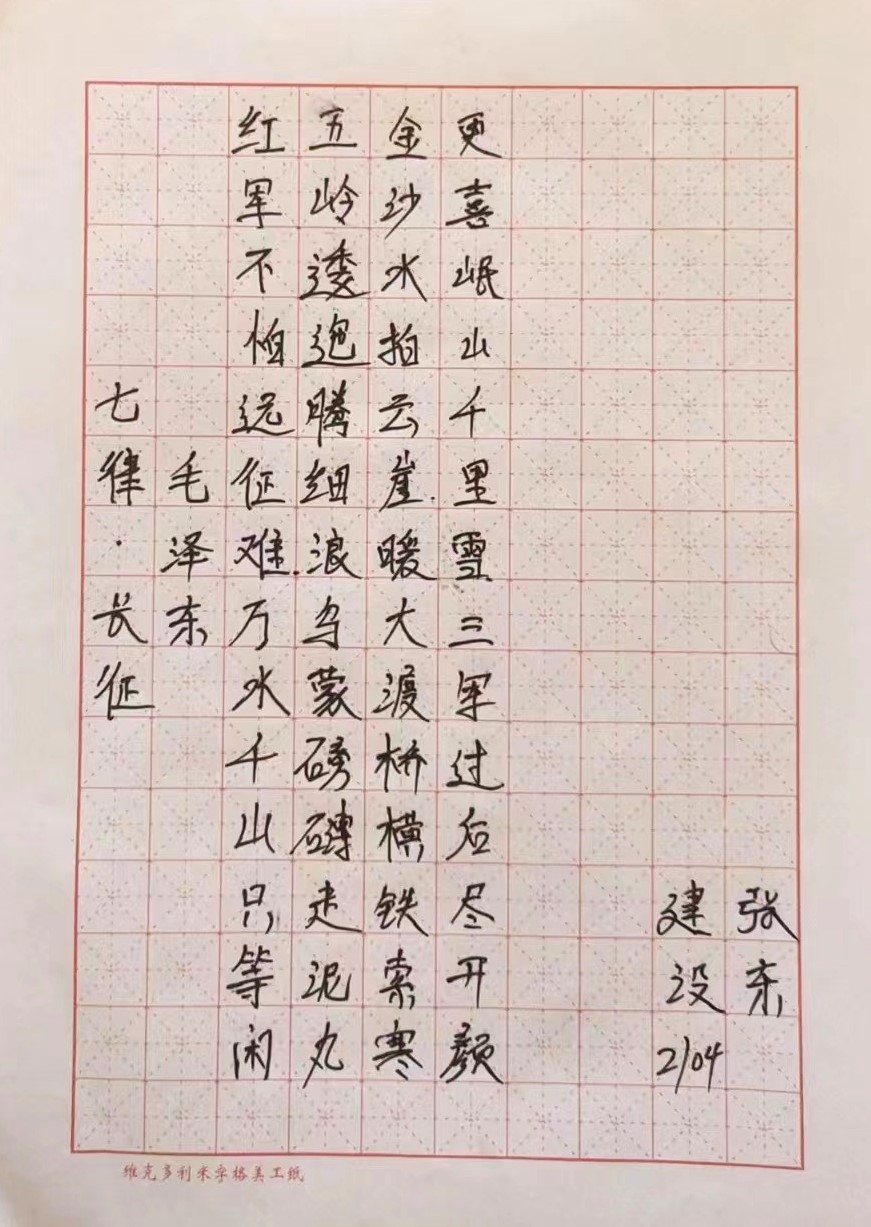 七律·长征
毛泽东
红军不怕远征难万水千山只等闲
五岭逶迤腾细浪乌蒙磅礴走泥丸
金沙水拍云崖暖大渡桥横铁索寒
更喜岷山千里雪三军过后尽开颜
建设2104
张东
维克多利米字格美工纸